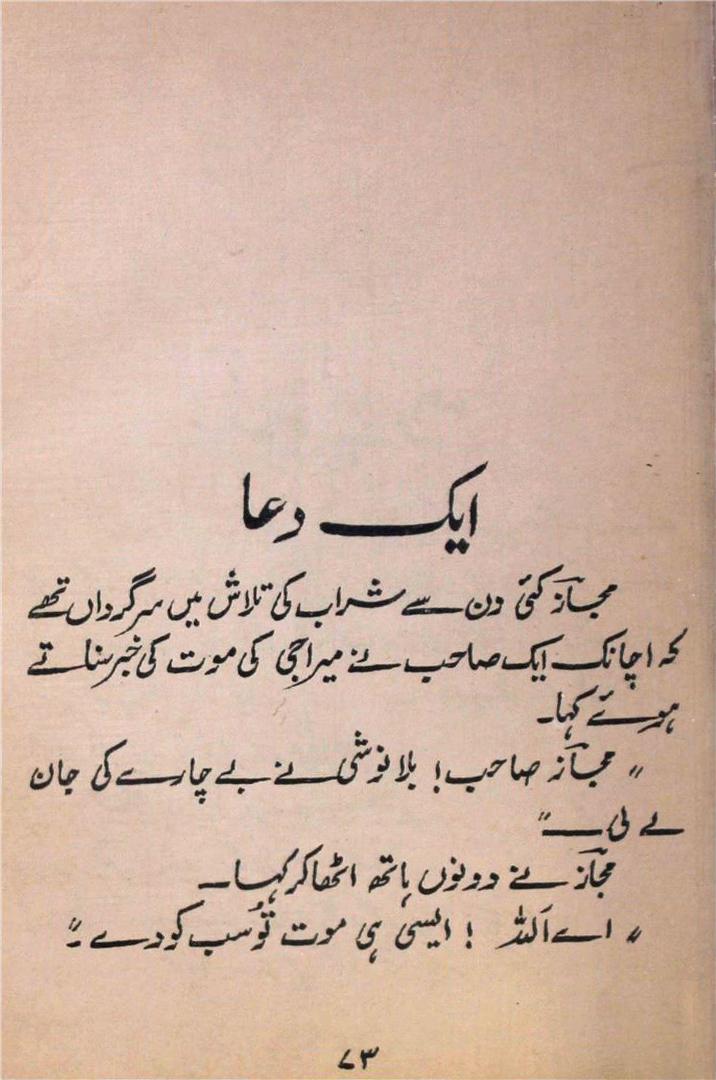 ایک دعا
مجاز کئی دن سے شراب کی تلاش میں سرگرداں تھے
کہ اچانک ایک صاحب نے میراجی کی موت کی خبر سناتے
ہوئے کہا۔
"مجاز صاحب! بلانوشی نے بے چارے کی جان
لے لی۔"
مجاز نے دونوں ہاتھ اٹھا کر کہا۔
"اے اَللہ! ایسی ہی موت تُو سب کو دے۔"
۷۳